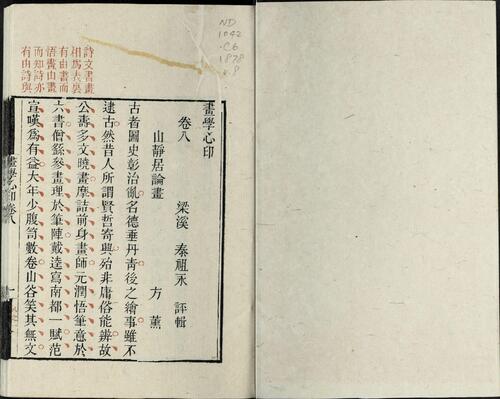 ND
1042
.C6
1878
v.8
詩文書畫
相為表裏
有由書而
悟畫由畫
而知詩亦
有由詩與
畫學心印
卷八 梁溪 秦祖永 評輯
山靜居論畫 方薰
古者圖史彰治亂名德垂丹青後之繪事雖不
逮古然昔人所謂賢哲寄興殆非庸俗能辨故
公壽多文曉畫摩詰前身畫師元潤悟筆意於
六書僧繇參畫理於筆陣戴逵寫南都一賦范
宣嘆為有益大年少腹笥數卷山谷笑其無文
畫學心印卷八 一